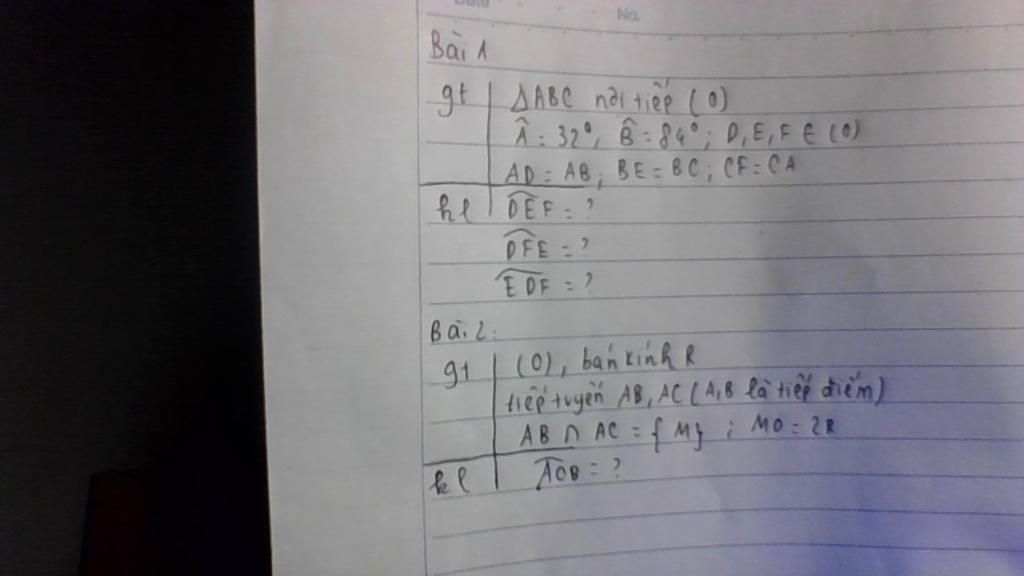 Date
No.
Bài 1
gt | ΔABC nội tiếp (O)
Â = 32°, B̂ = 84°; D, E, F ∈ (O)
AD = AB; BE = BC; CF = CA
kl | D͡EF = ?
D͡FE = ?
E͡DF = ?
Bài 2:
gt | (O), bán kính R
tiếp tuyến AB, AC (A, B là tiếp điểm)
AB ∩ AC = {M}; MO = 2R
kl | A͡OB = ?